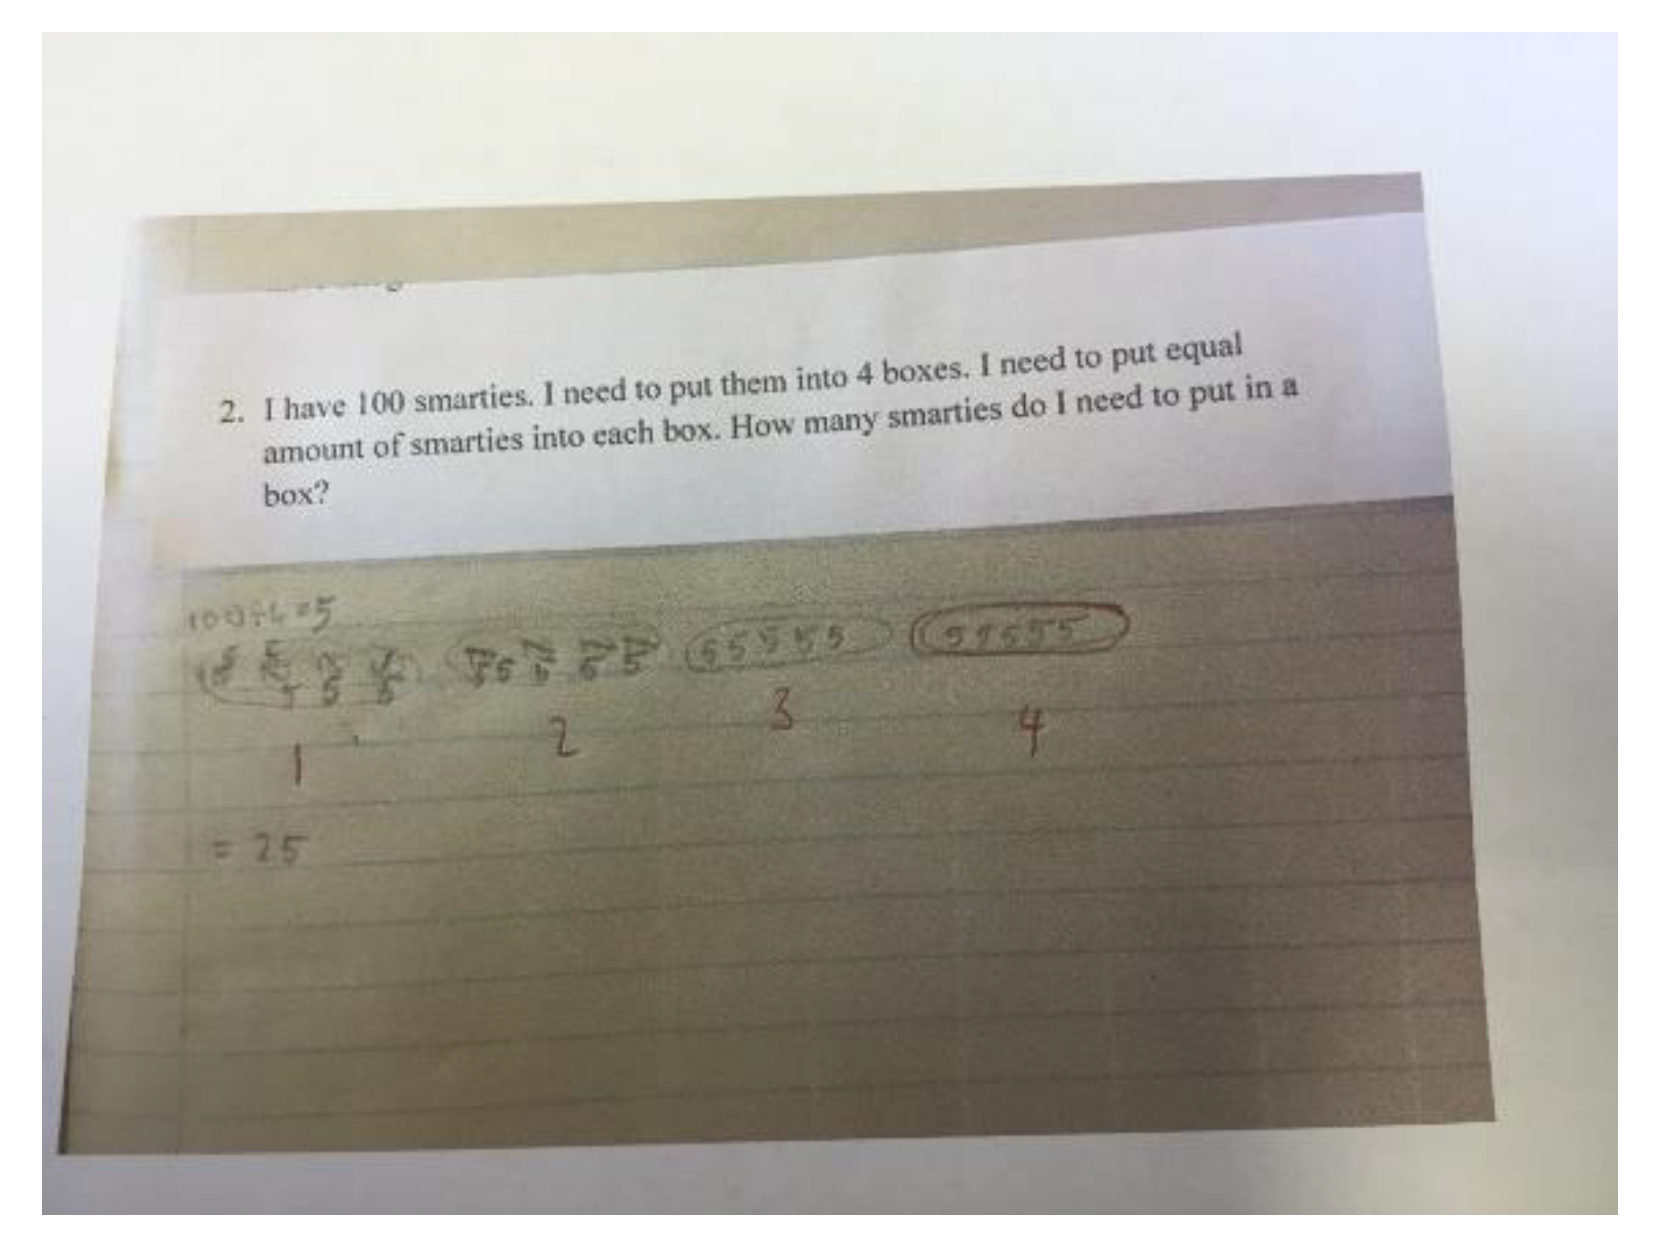 2. I have 100 smarties. I need to put them into 4 boxes. I need to put equal
amount of smarties into each box. How many smarties do I need to put in a
box?
100÷4=5
5 5 5 5 5 5 5 5 5 5 55555 55555
1 2 3 4
= 25